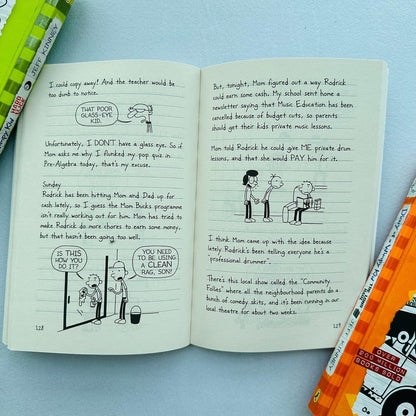 I could copy away! And the teacher would be
too dumb to notice.
THAT POOR
GLASS-EYE
KID.
Unfortunately, I DON'T have a glass eye. So if
Mom asks me why I flunked my pop quiz in
Pre-Algebra today, that's my excuse.
Sunday
Rodrick has been hitting Mom and Dad up for
cash lately, so I guess the Mom Bucks programme
isn't really working out for him. Mom has tried to
make Rodrick do more chores to earn some money,
but that hasn't been going too well.
IS THIS
HOW YOU
DO IT?
YOU NEED
TO BE USING
A CLEAN
RAG, SON!
128
But, tonight, Mom figured out a way Rodrick
could earn some cash. My school sent home a
newsletter saying that Music Education has been
cancelled because of budget cuts, so parents
should get their kids private music lessons.
Mom told Rodrick he could give ME private drum
lessons, and that she would PAY him for it.
I think Mom came up with the idea because
lately, Rodrick's been telling everyone he's a
professional drummer".
There's this local show called the "Community
Follies" where all the neighbourhood parents do a
bunch of comedy skits, and it's been running in our
local theatre for about two weeks.
129
JEFF KINNEY
JEFF KINNEY
OVER
200 MILLION
BOOKS SOLD